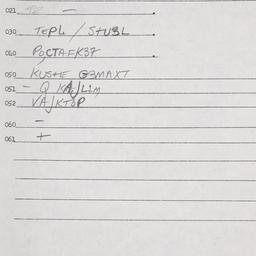 021 —
030 TEPL / STUBL
040 POCTAFK37
050 KUSTE GBMAXT
051 - Q KAJLIM
052 VAJKTOP
060 -
061 +